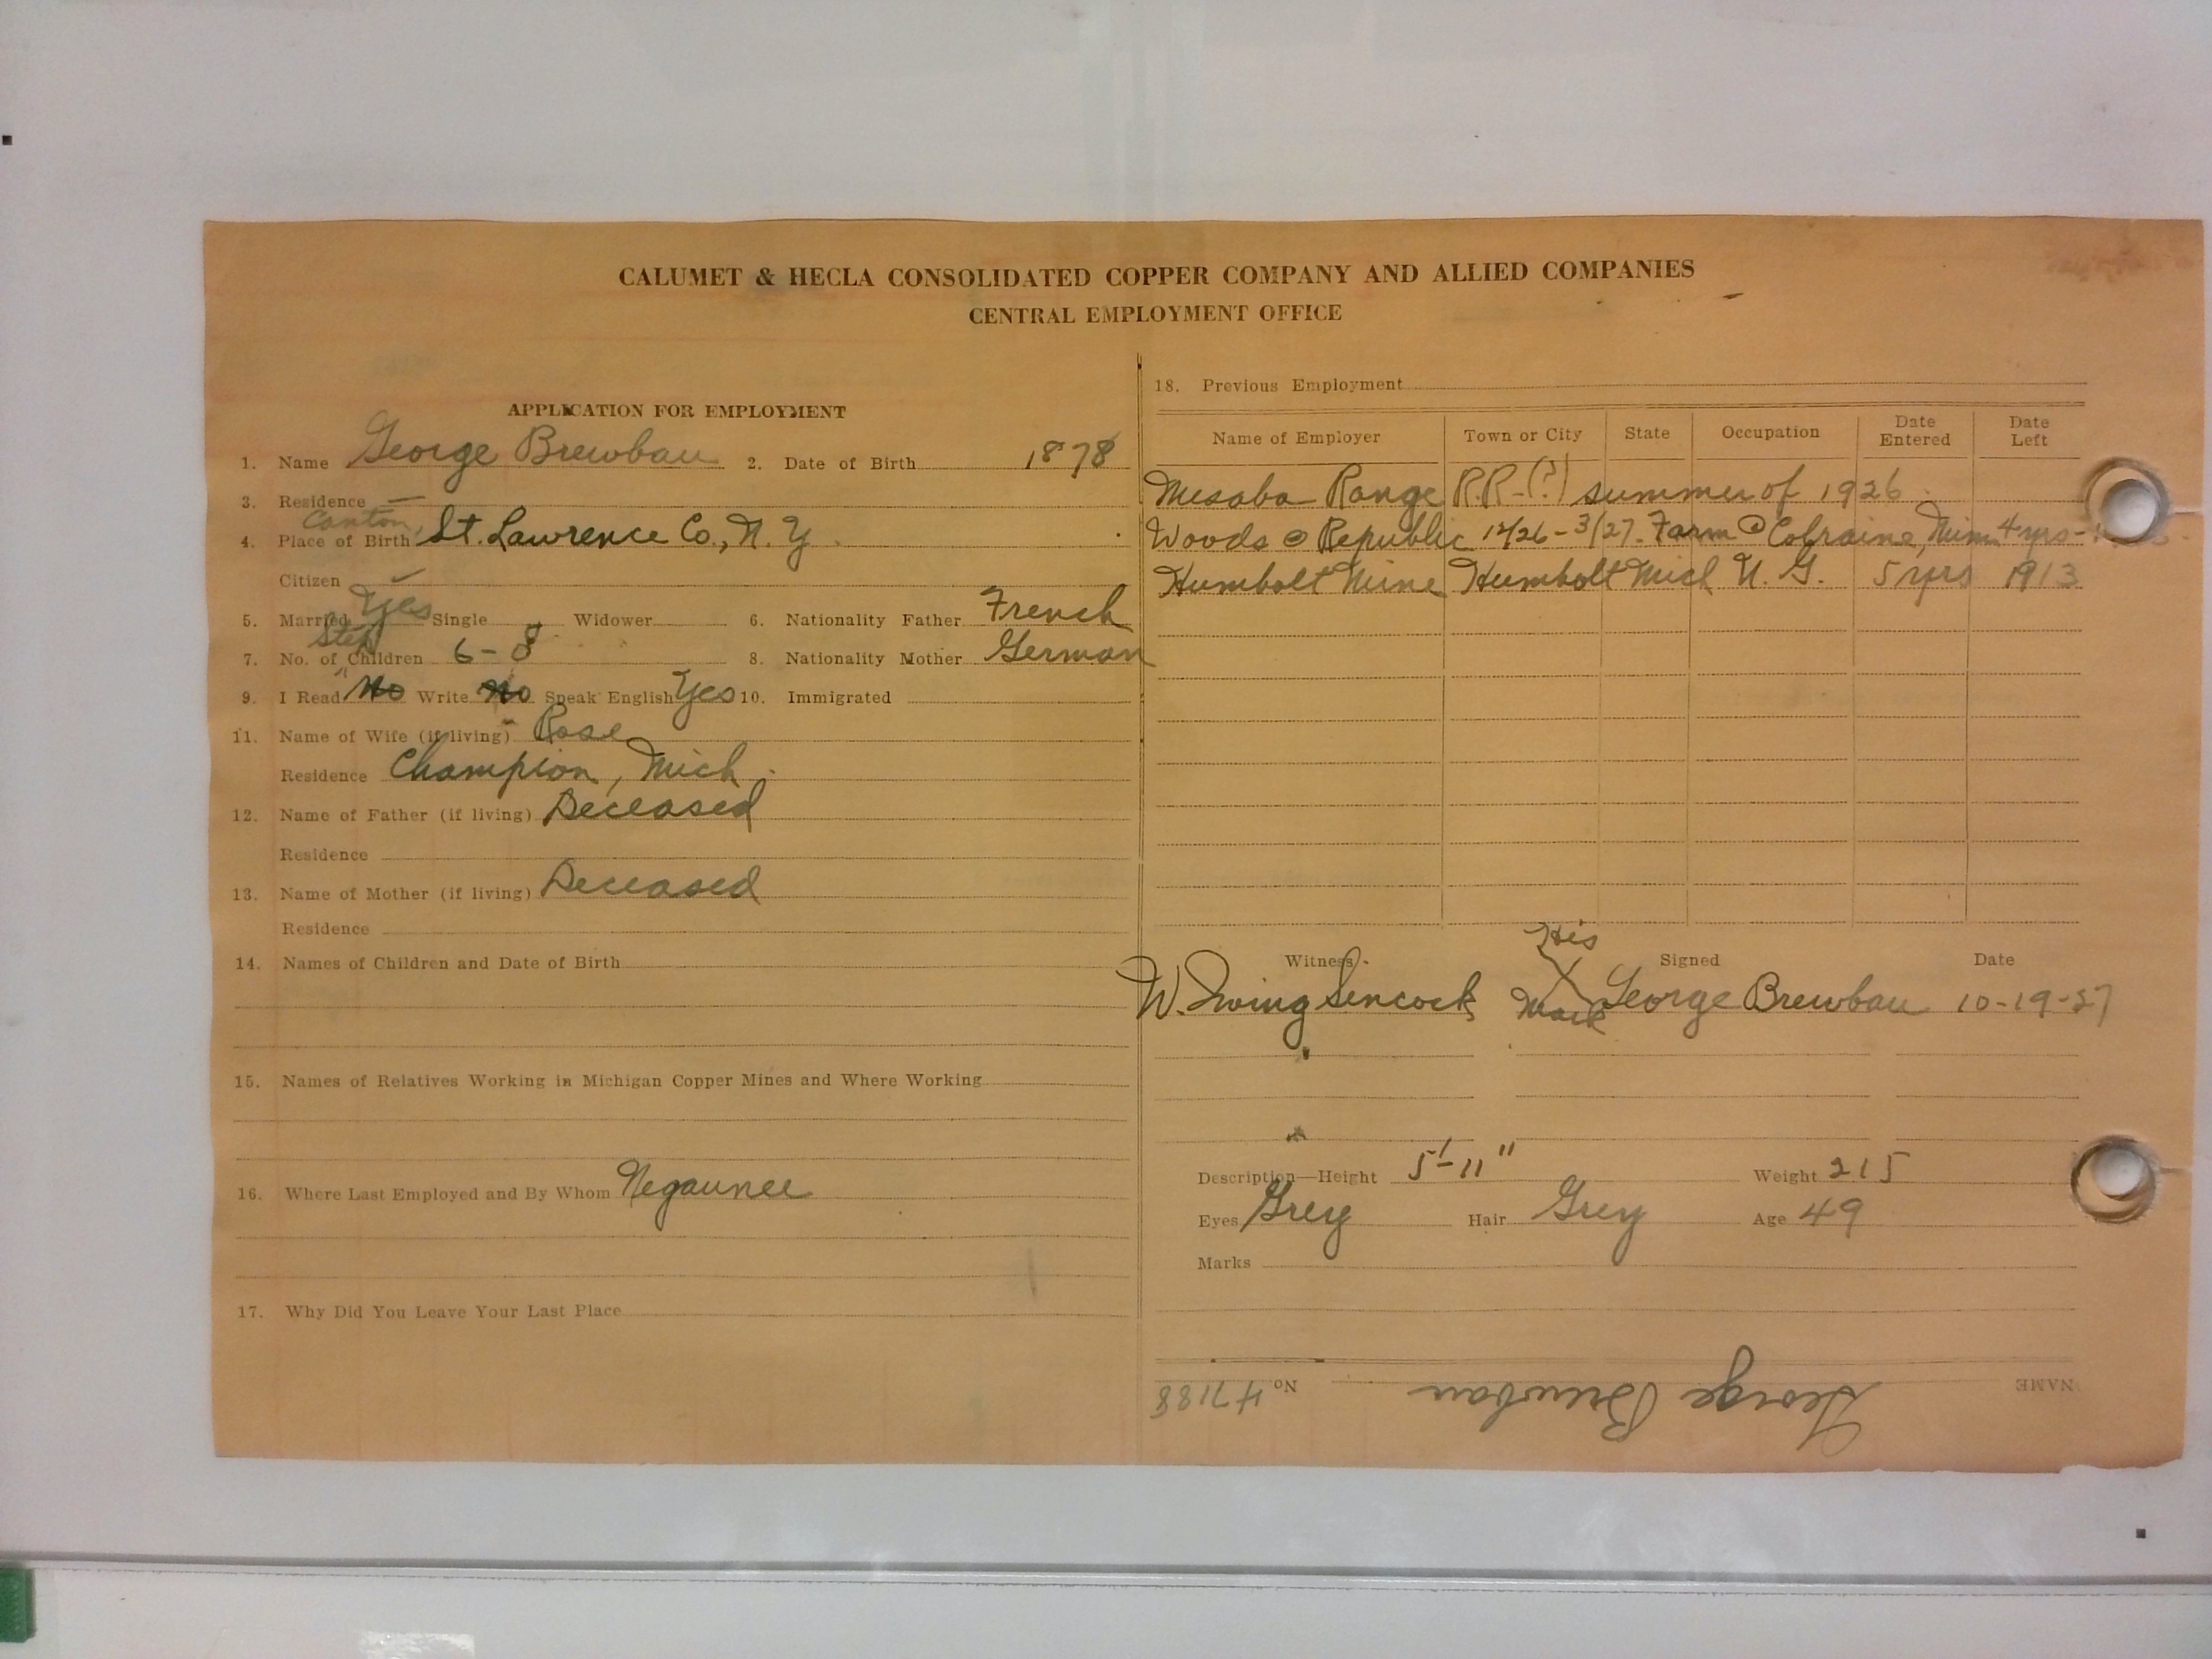 CALUMET & HECLA CONSOLIDATED COPPER COMPANY AND ALLIED COMPANIES
CENTRAL EMPLOYMENT OFFICE
APPLICATION FOR EMPLOYMENT
1. Name George Brewbau 2. Date of Birth 1878
3. Residence —
Canton,
4. Place of Birth St. Lawrence Co., N.Y.
Citizen ✓
5. Married Yes Single Widower 6. Nationality Father French
Step
7. No. of Children 6-8 8. Nationality Mother German
9. I Read No Write No Speak English Yes 10. Immigrated
11. Name of Wife (if living) Rose
Residence Champion, Mich.
12. Name of Father (if living) Deceased
Residence
13. Name of Mother (if living) Deceased
Residence
14. Names of Children and Date of Birth
15. Names of Relatives Working in Michigan Copper Mines and Where Working
16. Where Last Employed and By Whom Negaunee
17. Why Did You Leave Your Last Place
18. Previous Employment
Name of Employer Town or City State Occupation Date Entered Date Left
Mesaba Range R.R-(?) summer of 1926
Woods @ Republic 12/26-3/27. Farm @ Colraine, Minn 4 yrs-
Humbolt Mine Humbolt Mich U.G. 5 yrs 1913
Witness Signed Date
His
W. Ewing Sencock X George Brewbau 10-19-27
Mark
Description—Height 5'-11" Weight 215
Eyes Grey Hair Grey Age 49
Marks
NAME George Brewbau No. 47188